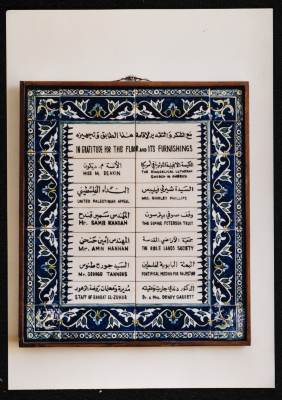 مع الشكر و التقدير لإقامة هذا الطابق وتجهيزه
IN GRATITUDE FOR THIS FLOOR AND ITS FURNISHINGS
الآنسة م. ديكون
MISS M. DEAKIN
الكنيسة الانجيلية اللوثرية في أمريكا
THE EVANGELICAL LUTHERAN
CHURCH IN AMERICA
النداء الفلسطيني
UNITED PALESTINIAN APPEAL
السيدة شيرلي فيليبس
MRS. SHIRLEY PHILLIPS
المهندس سمير قندح
MR. SAMIR
وقف سوفي بيترسون
THE SOPHIE PETERSON TRUST
المهندس أمين حنحن
MR. AMIN
جمعية الأراضي المقدسة
THE BIBLE LANDS SOCIETY
السيد جورج طنوس
MR. GEORGE TANNOUS
البعثة البابوية لفلسطين
PONTIFICAL MISSION FOR PALESTINE
مديرة ومعلمات روضة الزهور
STAFF OF RAWDAT EL-ZUHUR
الدكتور دندي جاريت وعقيلته
DR. & MRS. GARRETT